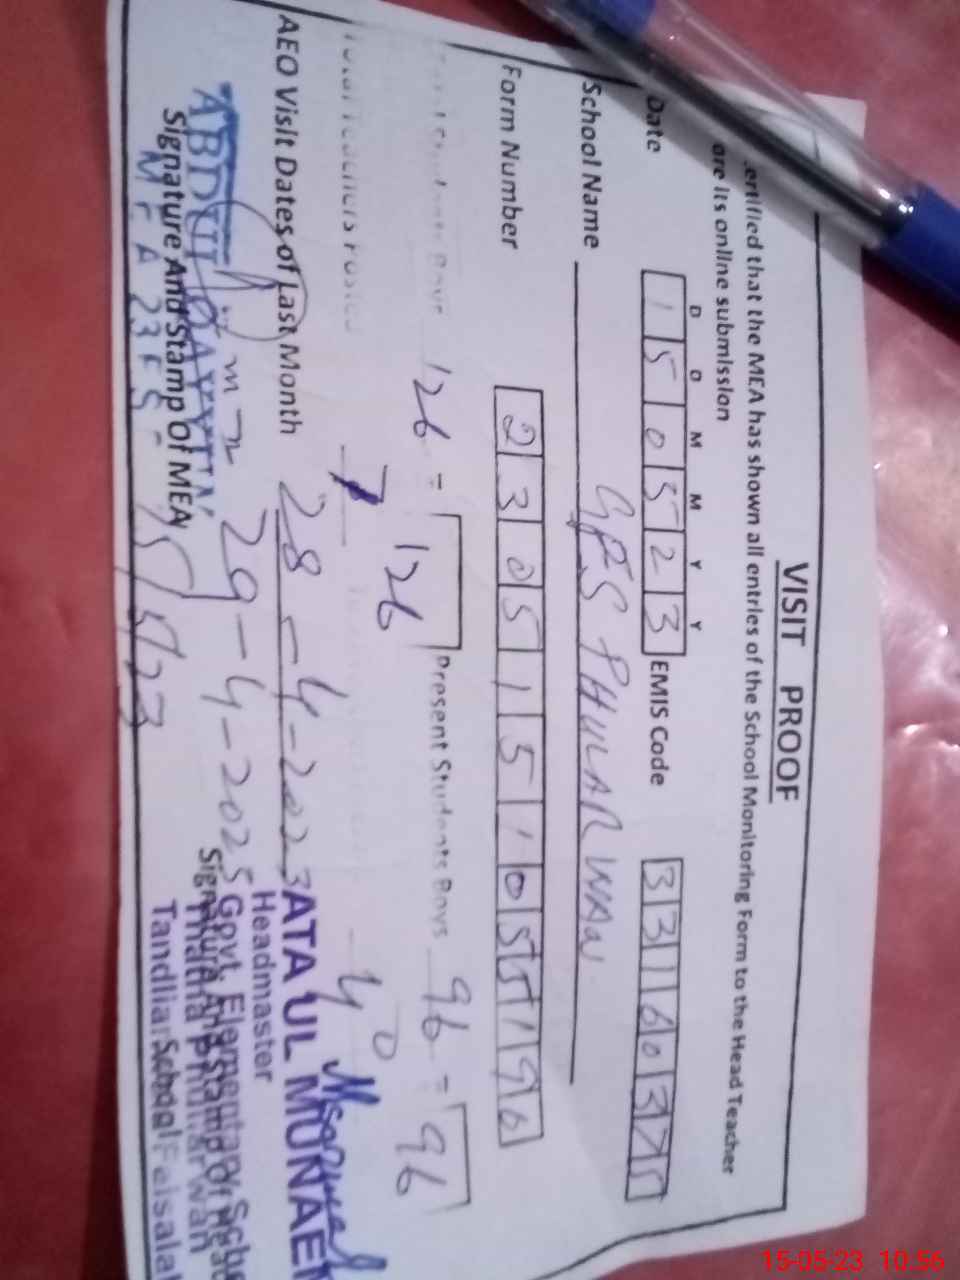 VISIT PROOF
ertified that the MEA has shown all entries of the School Monitoring Form to the Head Teacher
ore its online submission
D D M M Y Y
Date 150523 EMIS Code 33160375
School Name GES PHULARWAN
Form Number 2305151055196
126 = 126 Present Students Boys 96 = 96
Total Teachers Posted 7
AEO Visit Dates of Last Month 28-4-2023
29-4-2025
ABDUL QAYYUM
Signature And Stamp Of MEA
MEA 23FS- 15/5/23
ATA UL MUNAEM
Headmaster
Govt. Elementary Scho
Thatha Phularwan
Tandlian Faisalab
15-05-23 10:56